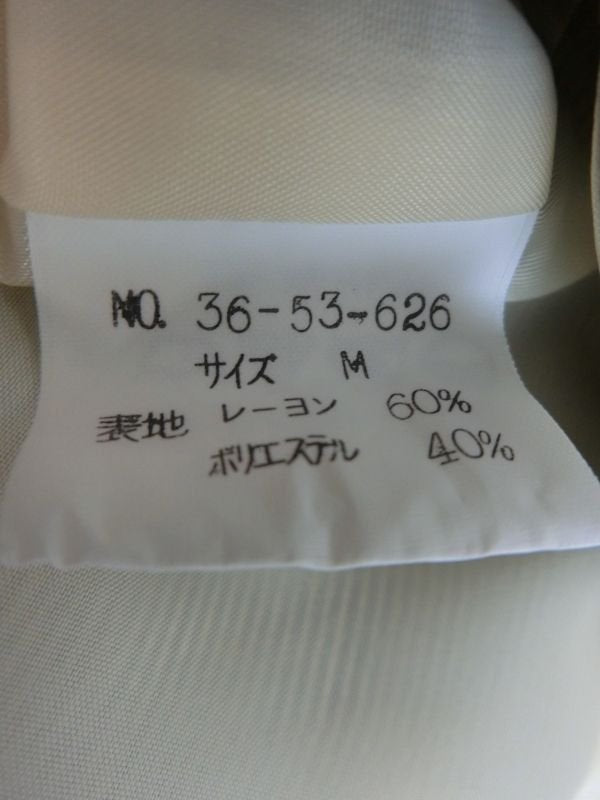 NO. 36-53-626
サイズ M
表地 レーヨン 60%
ポリエステル 40%